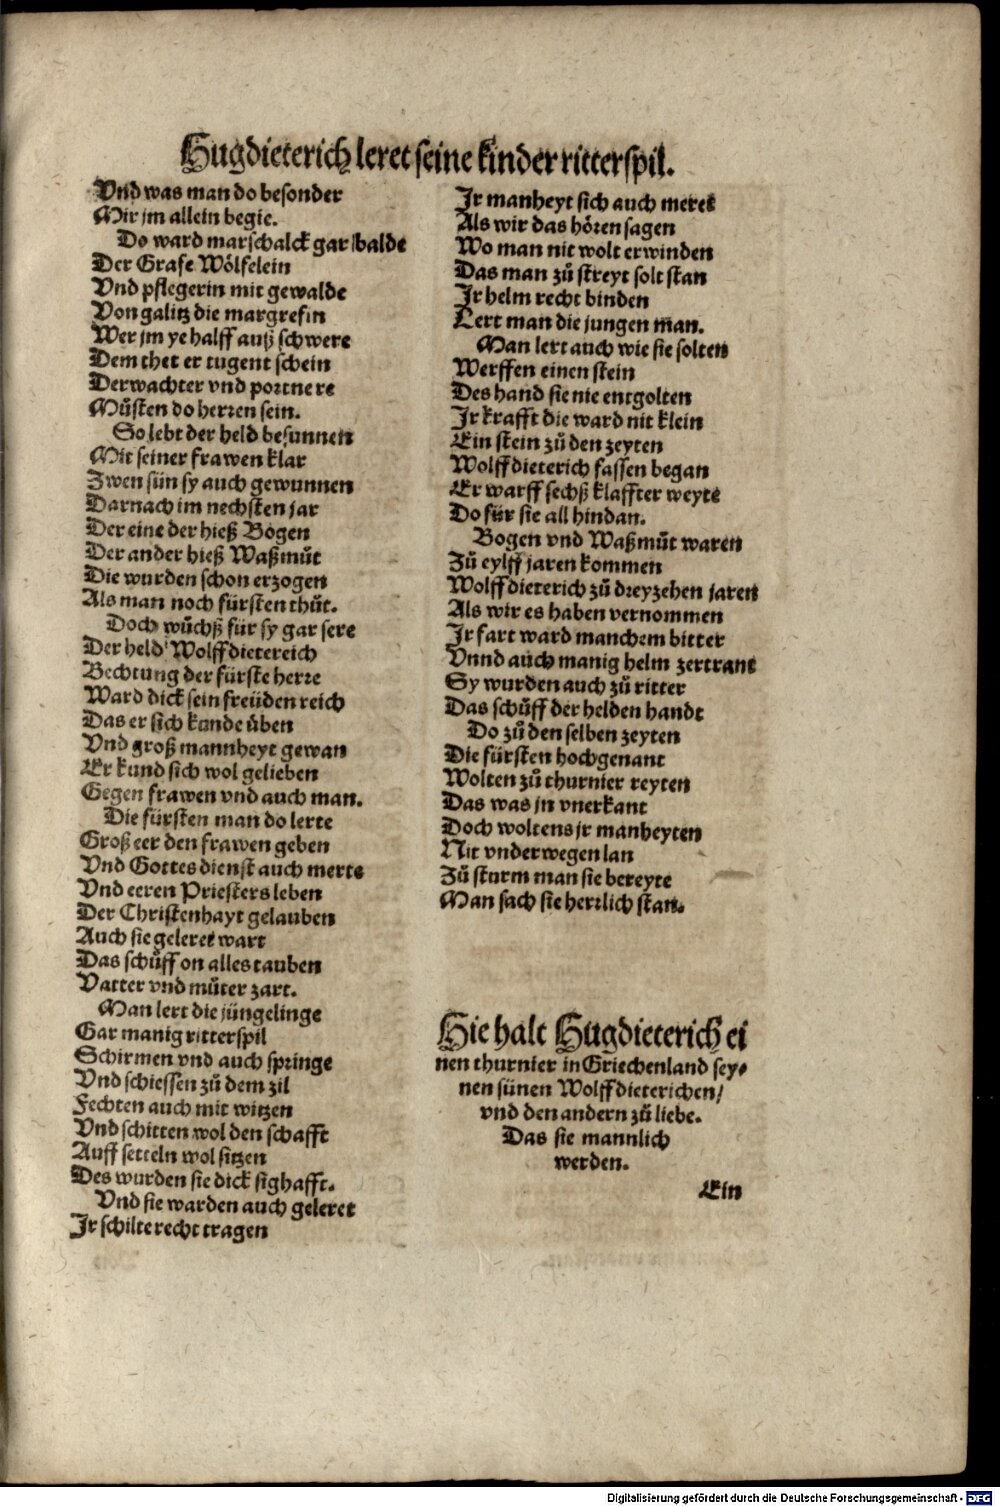 Hugdieterich leret seine kinder ritterspil.
Vnd was man do besonder
Mir jm allein begie.
Do ward marschalck gar balde
Der Grafe Wölfelein
Vnd pflegerin mit gewalde
Von galitz die margrefin
Wer jm ye halff auß schwere
Dem thet er tugent schein
Der wachter vnd portnere
Mů̈sten do herren sein.
So lebt der held besunnen
Mit seiner frawen klar
Zwen sün sy auch gewunnen
Darnach im nechsten jar
Der eine der hieß Bogen
Der ander hieß Waßmůt
Die wurden schon erzogen
Als man noch fürsten thůt.
Doch wůchß für sy gar sere
Der held Wolffdietereich
Bechtung der fürste herre
Ward dick sein freüden reich
Das er sich kunde üben
Vnd groß mannheyt gewan
Er kund sich wol gelieben
Gegen frawen vnd auch man.
Die fürsten man do lerte
Groß eer den frawen geben
Vnd Gottes dienst auch merte
Vnd eeren Priesters leben
Der Christenhayt gelauben
Auch sie geleret wart
Das schůff on alles tauben
Vatter vnd můter zart.
Man lert die jüngelinge
Gar manig ritterspil
Schirmen vnd auch springe
Vnd schiessen zů dem zil
Fechten auch mit witzen
Vnd schitten wol den schafft
Auff setteln wol sitzen
Des wurden sie dick sighafft.
Vnd sie warden auch geleret
Jr schilte recht tragen
Jr manheyt sich auch meret
Als wir das hören sagen
Wo man nit wolt erwinden
Das man zů streyt solt stan
Jr helm recht binden
Lert man die jungen man̄.
Man lert auch wie sie solten
Werffen einen stein
Des hand sie nie entgolten
Jr krafft die ward nit klein
Ein stein zů den zeyten
Wolffdieterich fassen began
Er warff sechß klaffter weyte
Do für sie all hindan.
Bogen vnd Waßmůt waren
Zů eylff jaren kommen
Wolffdieterich zů dreyzehen jaren
Als wir es haben vernommen
Jr fart ward manchem bitter
Vnnd auch manig helm zertrant
Sy wurden auch zů ritter
Das schůff der helden handt
Do zů den selben zeyten
Die fürsten hochgenant
Wolten zů thurnier reyten
Das was jn vnerkant
Doch woltens jr manheyten
Nit vnderwegen lan
Zů sturm man sie bereyte
Man sach sie herrlich stan.
Hie halt Hugdieterich ei
nen thurnier in Griechenland sey⸗
nen sünen Wolffdieterichen/
vnd den andern zů liebe.
Das sie mannlich
werden.
Ein
Digitalisierung gefördert durch die Deutsche Forschungsgemeinschaft - DFG